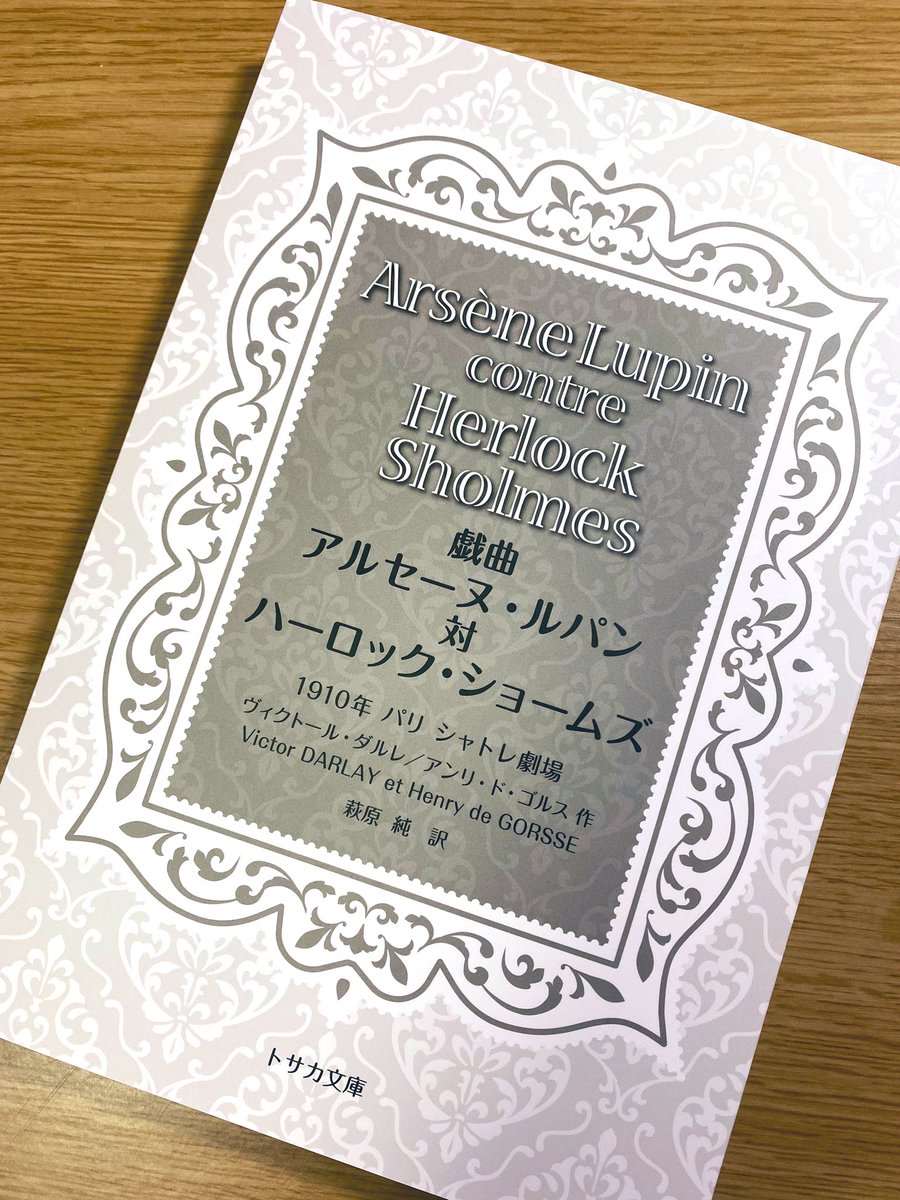 Arsène Lupin
contre
Herlock
Sholmes
戯曲
アルセーヌ・ルパン
対
ハーロック・ショームズ
1910年 パリ シャトレ劇場
ヴィクトール・ダルレ／アンリ・ド・ゴルス 作
Victor DARLAY et Henry de GORSSE
萩原 純 訳
トサカ文庫